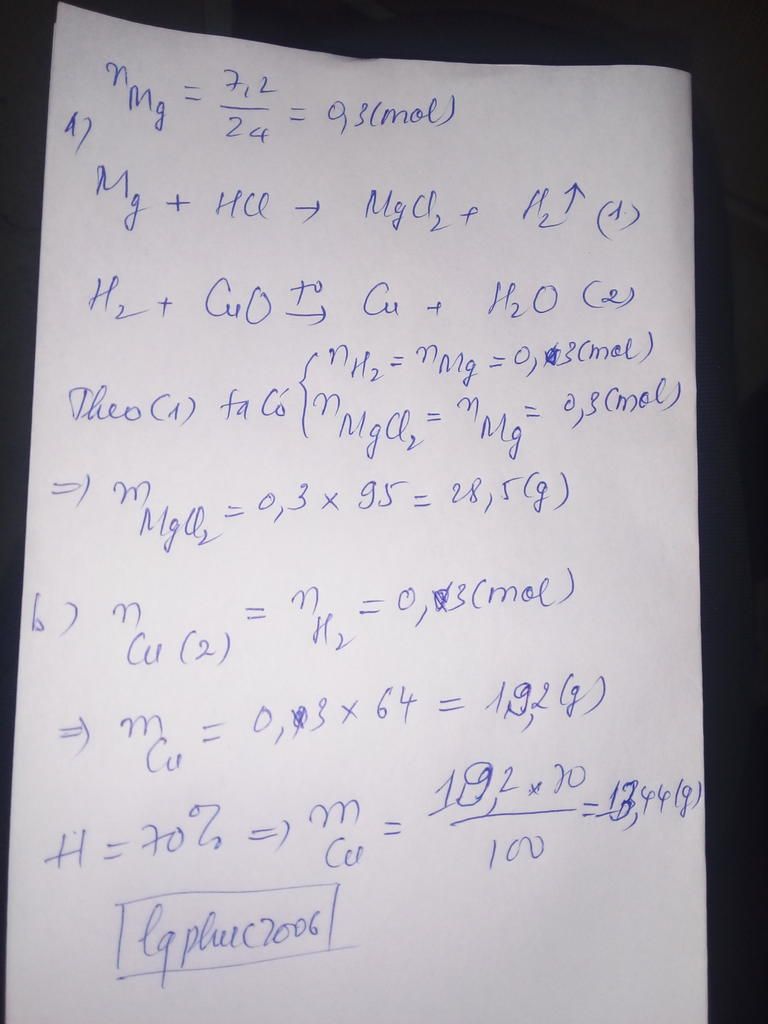 n_Mg = 7,2/24 = 0,3(mol)
a)
Mg + HCl → MgCl₂ + H₂↑ (1)
H₂ + CuO t°→ Cu + H₂O (2)
Theo (1) ta có { n_H₂ = n_Mg = 0,3(mol)
n_MgCl₂ = n_Mg = 0,3(mol)
=> m_MgCl₂ = 0,3 × 95 = 28,5(g)
b) n_Cu (2) = n_H₂ = 0,3(mol)
=> m_Cu = 0,3 × 64 = 19,2(g)
H = 70% => m_Cu = 19,2 × 70/100 = 13,44(g)
lqphuc2006